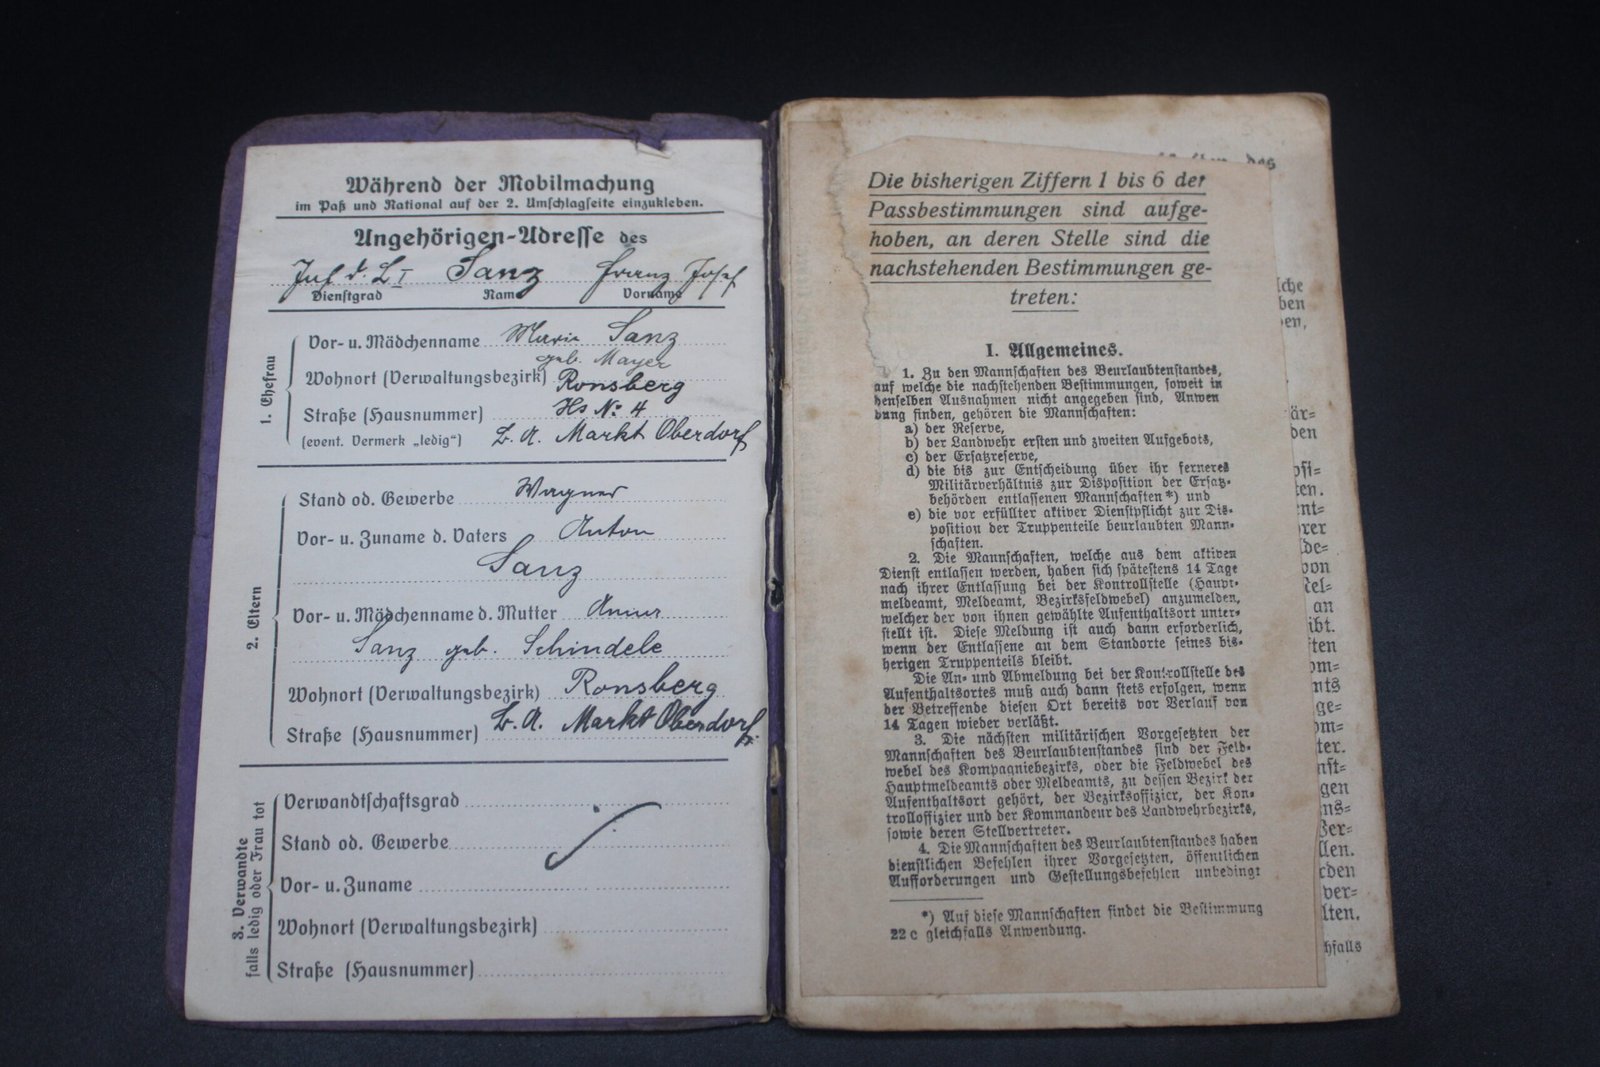 Während der Mobilmachung
im Paß und National auf der 2. Umschlagseite einzukleben.
Angehörigen-Adresse des
Inf. d. L I Sanz Franz Josef
Dienstgrad Name Vorname
1. Ehefrau
Vor- u. Mädchenname Marie Sanz
geb. Mayer
Wohnort (Verwaltungsbezirk) Ronsberg
Straße (Hausnummer) Hs No: 4
(event. Vermerk „ledig“) B. A. Markt Oberdorf
2. Eltern
Stand od. Gewerbe Wagner
Vor- u. Zuname d. Vaters Anton
Sanz
Vor- u. Mädchenname d. Mutter
Sanz geb. Schindele
Wohnort (Verwaltungsbezirk) Ronsberg
Straße (Hausnummer) B. A. Markt Oberdorf.
3. Verwandte
falls ledig oder Frau tot
Verwandtschaftsgrad
Stand od. Gewerbe
Vor- u. Zuname
Wohnort (Verwaltungsbezirk)
Straße (Hausnummer)
Die bisherigen Ziffern 1 bis 6 der
Passbestimmungen sind aufge-
hoben, an deren Stelle sind die
nachstehenden Bestimmungen ge-
treten:
I. Allgemeines.
1. Zu den Mannschaften des Beurlaubtenstandes,
auf welche die nachstehenden Bestimmungen, soweit in
denselben Ausnahmen nicht angegeben sind, Anwen
dung finden, gehören die Mannschaften:
a) der Reserve,
b) der Landwehr ersten und zweiten Aufgebots,
c) der Ersatzreserve,
d) die bis zur Entscheidung über ihr ferneres
Militärverhältnis zur Disposition der Ersatz-
behörden entlassenen Mannschaften*) und
e) die vor erfüllter aktiver Dienstpflicht zur Dis-
position der Truppenteile beurlaubten Mann-
schaften.
2. Die Mannschaften, welche aus dem aktiven
Dienst entlassen werden, haben sich spätestens 14 Tage
nach ihrer Entlassung bei der Kontrollstelle (Haupt-
meldeamt, Meldeamt, Bezirksfeldwebel) anzumelden,
welcher der von ihnen gewählte Aufenthaltsort unter-
stellt ist. Diese Meldung ist auch dann erforderlich,
wenn der Entlassene an dem Standorte seines bis-
herigen Truppenteils bleibt.
Die An- und Abmeldung bei der Kontrollstelle des
Aufenthaltsortes muß auch dann stets erfolgen, wenn
der Betreffende diesen Ort bereits vor Verlauf von
14 Tagen wieder verläßt.
3. Die nächsten militärischen Vorgesetzten der
Mannschaften des Beurlaubtenstandes sind der Feld-
webel des Kompagniebezirks, oder die Feldwebel des
Hauptmeldeamts oder Meldeamts, zu dessen Bezirk der
Aufenthaltsort gehört, der Bezirksoffizier, der Kon-
trolloffizier und der Kommandeur des Landwehrbezirks,
sowie deren Stellvertreter.
4. Die Mannschaften des Beurlaubtenstandes haben
dienstlichen Befehlen ihrer Vorgesetzten, öffentlichen
Aufforderungen und Gestellungsbefehlen unbedingt
*) Auf diese Mannschaften findet die Bestimmung
22 c gleichfalls Anwendung.